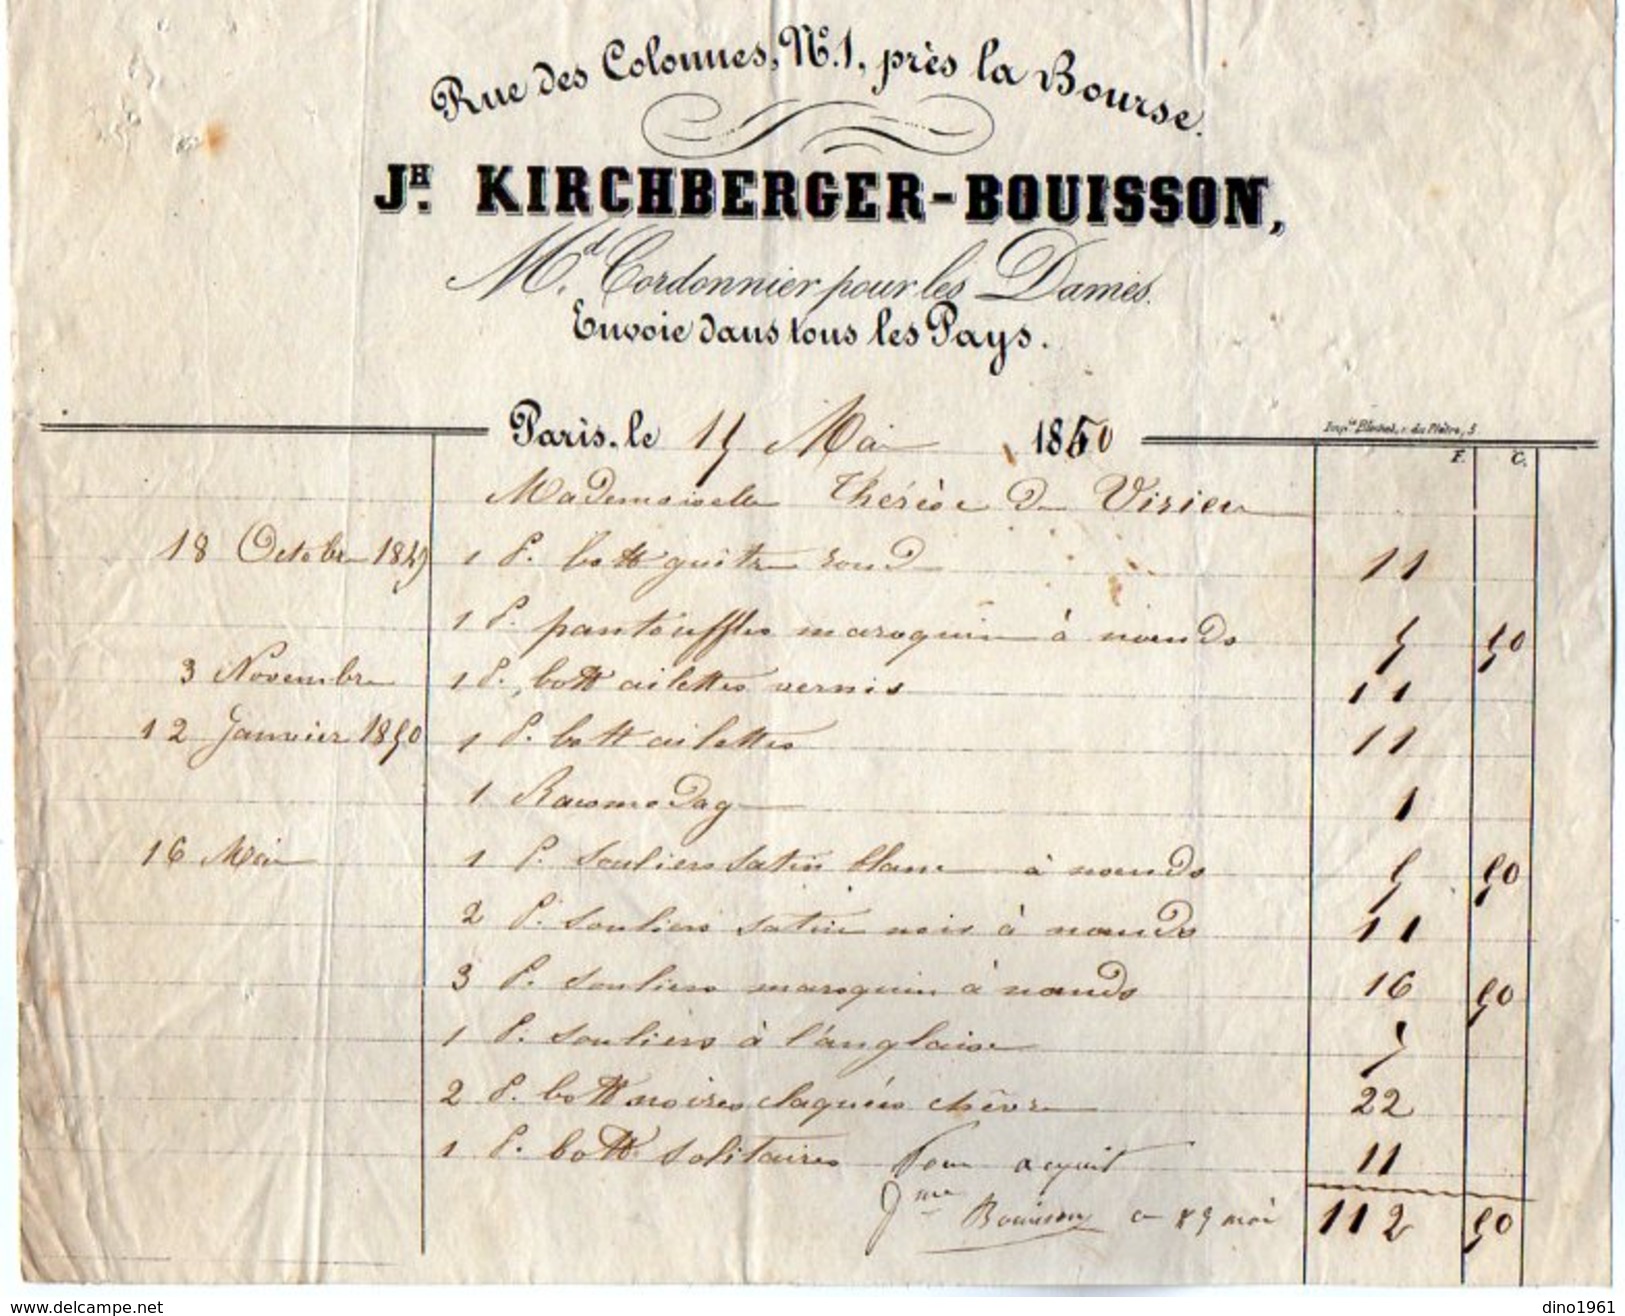 Rue des Colonnes, N° 1, près la Bourse.
JH. KIRCHBERGER-BOUISSON,
Md. Cordonnier pour les Dames.
Envoie dans tous les Pays.
Paris, le 15 Mai 1850
Impie Blondel, r. du Plâtre, 5.
F. C.
Mademoiselle Thérèse De Virieu
18 Octobre 1849 1 P. bott guêtre rond 11
1 P. pantouffles maroquin à nœuds 5 50
3 Novembre 1 P. bott ailettes vernis 11
12 Janvier 1850 1 P. bott ailettes 11
1 Racomodage 1
16 Mai 1 P. souliers satin blanc à nœuds 5 50
2 P. souliers satin noir à nœuds 11
3 P. souliers maroquin à nœuds 16 50
1 P. souliers à l'anglaise 7
2 P. bott noires claquées chèvre 22
1 P. bott solitaires 11
Pour acquit
Bouisson mai
112 50
dino1961
www.delcampe.net